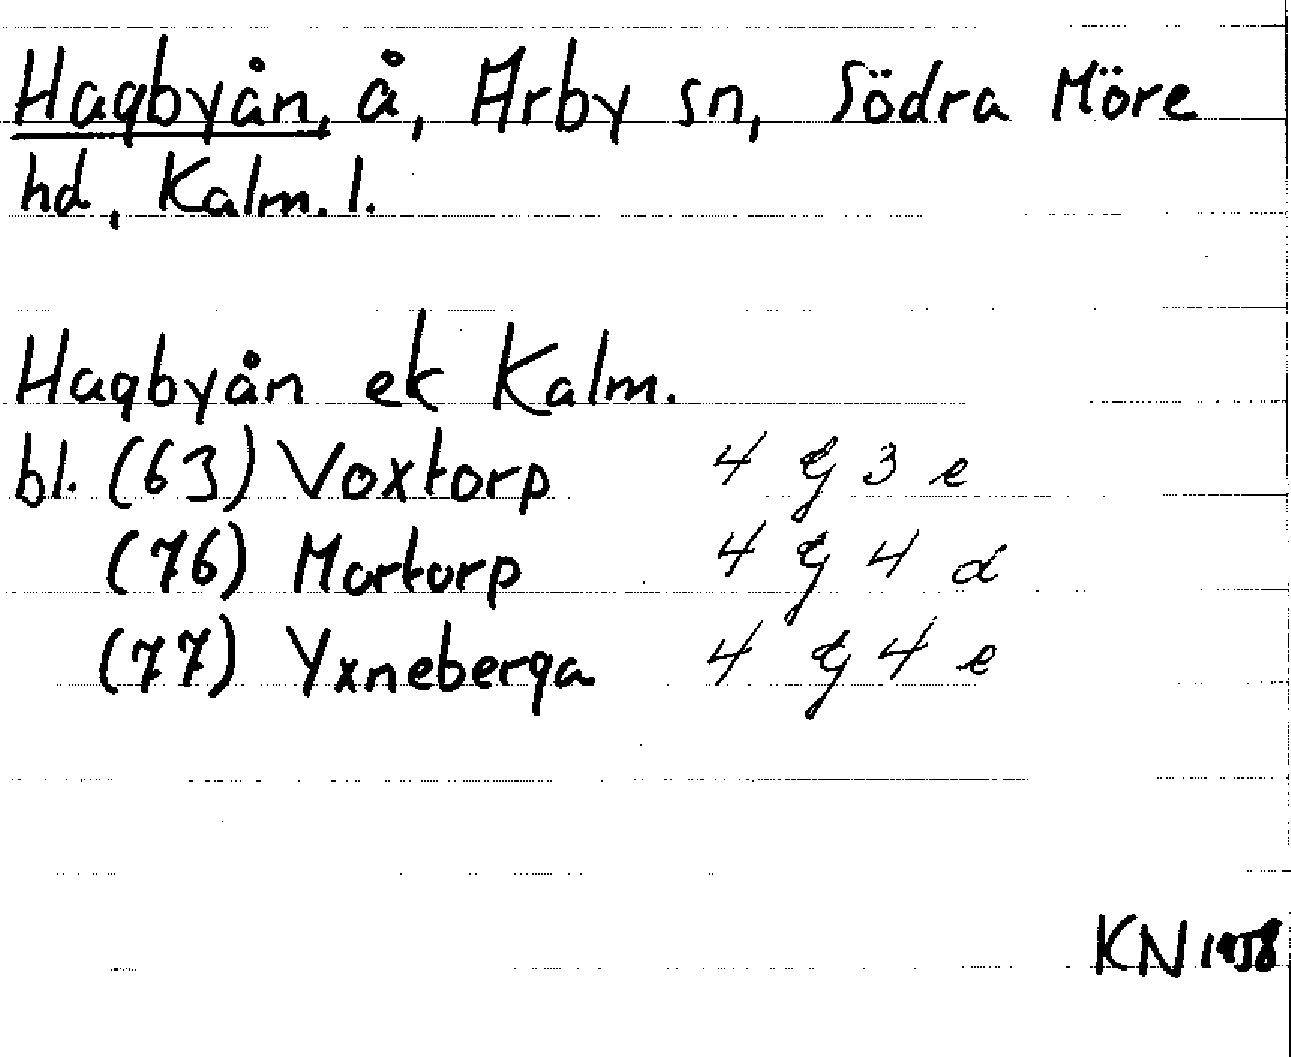 Hagbyån, å, Arby sn, Södra Möre
hd, Kalm. l.
Hagbyån ek Kalm.
bl. (63) Voxtorp 4 G 3 e
(76) Mortorp 4 G 4 d
(77) Yxneberga 4 G 4 e
KN 1958